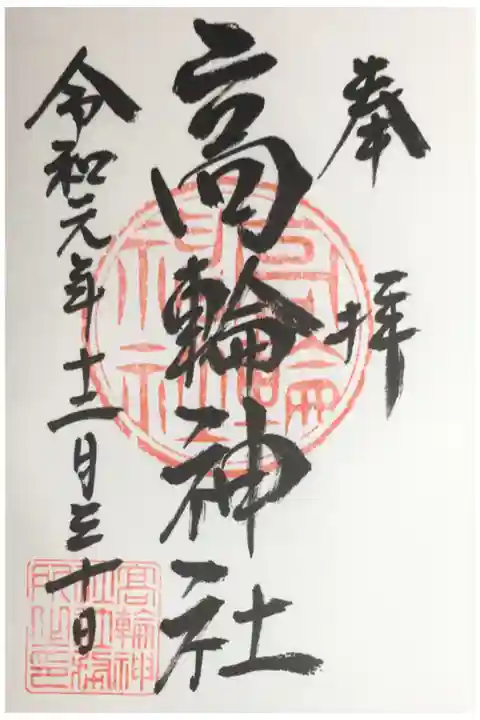 奉拝
高輪神社
令和元年十二月三十日
高輪神社
高輪神社社務所之印